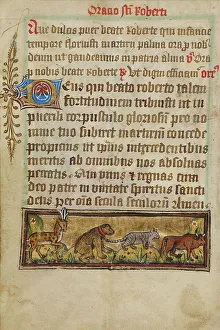 Orațio sti Roberti
Aue dulcis puer beate Roberte qui infancie
tempore floruisti martirii palma ora pro no
bis deum ut gaudeamus in patria alma v Ora
pro nobis beate Roberte R Ut digni efficiam orē
Deus qui beato roberto talem
fortitudinem tribuisti ut in
puerili corpusculo gloriosū pro no
mine tuo martirium
interueniente
ab omnibus nos absoluas
peccatis Qui uiuis et regnas cum
deo patre in unitate spiritus sanctus
deus per omnia secula seculorū Amen